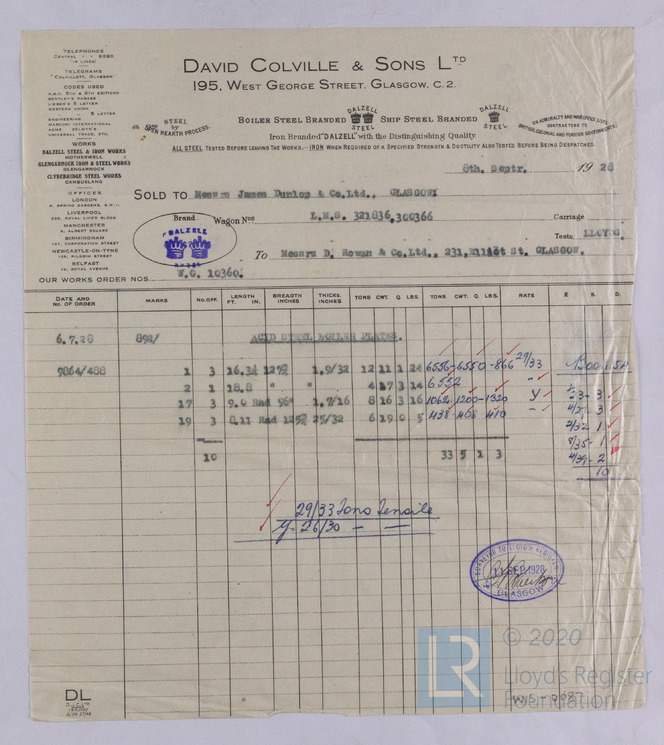 TELEPHONES
CENTRAL - - 9280
(12 LINES)
TELEGRAMS
"COLVILLETT, GLASGOW"
CODES USED
A.B.C. 5TH & 6TH EDITIONS
BENTLEY'S PHRASE
LIEBER'S 5 LETTER
WESTERN UNION
" 5 LETTER
ENGINEERING
MARCONI INTERNATIONAL
ACME
UNIVERSAL TRADE, ETC.
WORKS
DALZELL STEEL & IRON WORKS
MOTHERWELL
GLENGARNOCK IRON & STEEL WORKS
GLENGARNOCK
CLYDEBRIDGE STEEL WORKS
CAMBUSLANG
OFFICES
LONDON
LIVERPOOL
MANCHESTER
BIRMINGHAM
NEWCASTLE-ON-TYNE
BELFAST
DAVID COLVILLE & SONS LTD
195, WEST GEORGE STREET, GLASGOW, C.2.
STEEL
by
OPEN HEARTH PROCESS.
BOILER STEEL BRANDED DALZELL STEEL SHIP STEEL BRANDED DALZELL STEEL
ON ADMIRALTY AND WAR OFFICE LISTS
CONTRACTORS TO
BRITISH, COLONIAL AND FOREIGN GOVERNMENTS
Iron Branded "DALZELL" with the Distinguishing Quality
ALL STEEL TESTED BEFORE LEAVING THE WORKS. IRON WHEN REQUIRED OF A SPECIFIED STRENGTH & DUCTILITY ALSO TESTED BEFORE BEING DESPATCHED.
8th. Septr. 1928
SOLD TO Messrs James Dunlop & Co.Ltd., GLASGOW:
Brand. Wagon Nos L.M.S. 321836,300366 Carriage
DALZELL
STEEL
Tests LLOYDS.
To Messrs D. Rowan & Co.Ltd., 231,Elliot St. GLASGOW.
OUR WORKS ORDER NOS W.G. 10360.
DATE AND No. OF ORDER MARKS No. OFF. LENGTH FT. IN. BREADTH INCHES THICKS. INCHES TONS CWT. Q. LBS. TONS CWT. Q. LBS. RATE £ S. D.
6.7.28 892/ ACID STEEL BOILER PLATES.
9864/488 1 3 16.3¼ 1.9/32 12 11 1 24 6556-6550-866 29/33
2 1 18.8 " " 4 17 3 14 6552 "
17 3 9.0 Rad 96" 1.7/16 8 16 3 16 1062-1200-1320 Y 4/27 3
19 3 8.11 Rad 25/32 6 19 0 5 438-468-410 - 2/32 1
9/35 1
4/39-2
10 33 5 1 3 10
29/33 Tons Tensile
Y- 26/30 - -
SURVEYOR TO LLOYD'S REGISTER
SEP 1928
GLASGOW
DL
LR
© 2020
Lloyd's Register
Foundation